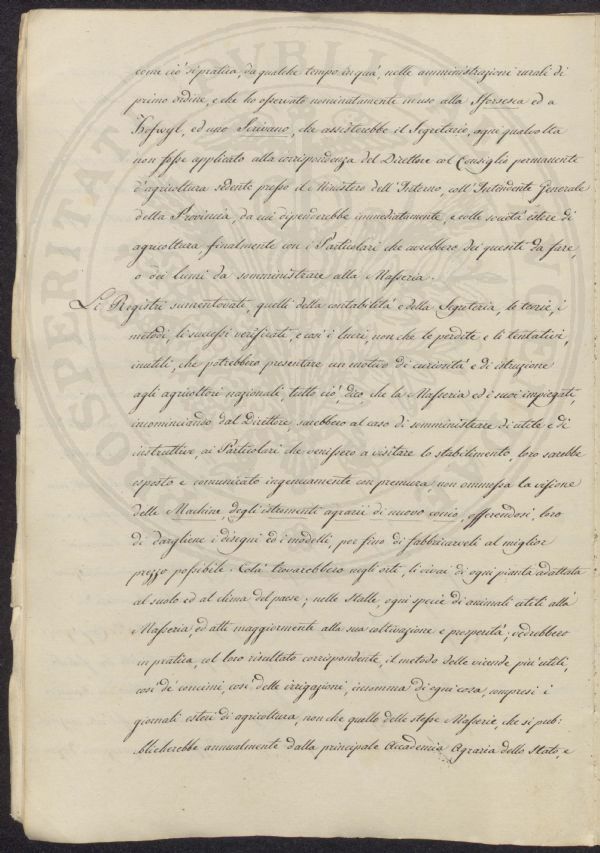 come ciò si pratica, da qualche tempo in quà, nelle amministrazioni rurali di
primo ordine, e che ho osservato nominatamente in uso alla Sforsesca ed a
Hofwyl, ed uno Scrivano, che assisterebbe il Segretario, ogni qualvolta
non fosse applicato alla corrispondenza del Direttore col Consiglio permanente
d'agricoltura sedente presso il Ministero dell'Interno, coll'Intendente Generale
della Provincia, da cui dipenderebbe immediatamente, e colle società estere di
agricoltura finalmente con i Particolari che avrebbero dei quesiti da fare,
o dei lumi da somministrare alla Masseria.
Li Registri surmentovati, quelli della contabilità e della Segreteria, le teorie, i
metodi, li successi verificati, e così i lucri, non che le perdite e li tentativi,
inutili, che potrebbero presentare un motivo di curiosità e di istruzione
agli agricoltori nazionali, tutto ciò, dico che la Masseria ed i suoi impiegati,
incominciando dal Direttore, sarebbero al caso di somministrare di utile e di
instruttivo, ai Particolari che venissero a visitare lo stabilimento, loro sarebbe
esposto e comunicato ingenuamente con premura, non ommessa la visione
delle Machine, degli istromenti agrarii di nuovo conio, offerendosi, loro
di dargliene i disegni ed i modelli, per fino di fabbricarveli al miglior
prezzo possibile. Colà trovarebbero negli orti, li vivai di ogni pianta adattata
al suolo ed al clima del paese; nelle Stalle, ogni specie di animali utili alla
Masseria, ed atti maggiormente alla sua coltivazione e prosperità; vedrebbero
in pratica, col loro risultato corrispondente, il metodo delle vicende più utili,
così de' concimi, così delle irrigazioni, insomma di ogni cosa, compresi i
giornali esteri di agricoltura, non che quello delle stesse Masserie, che si pub:
blicherebbe annualmente dalla principale Accademia Agraria dello Stato, e